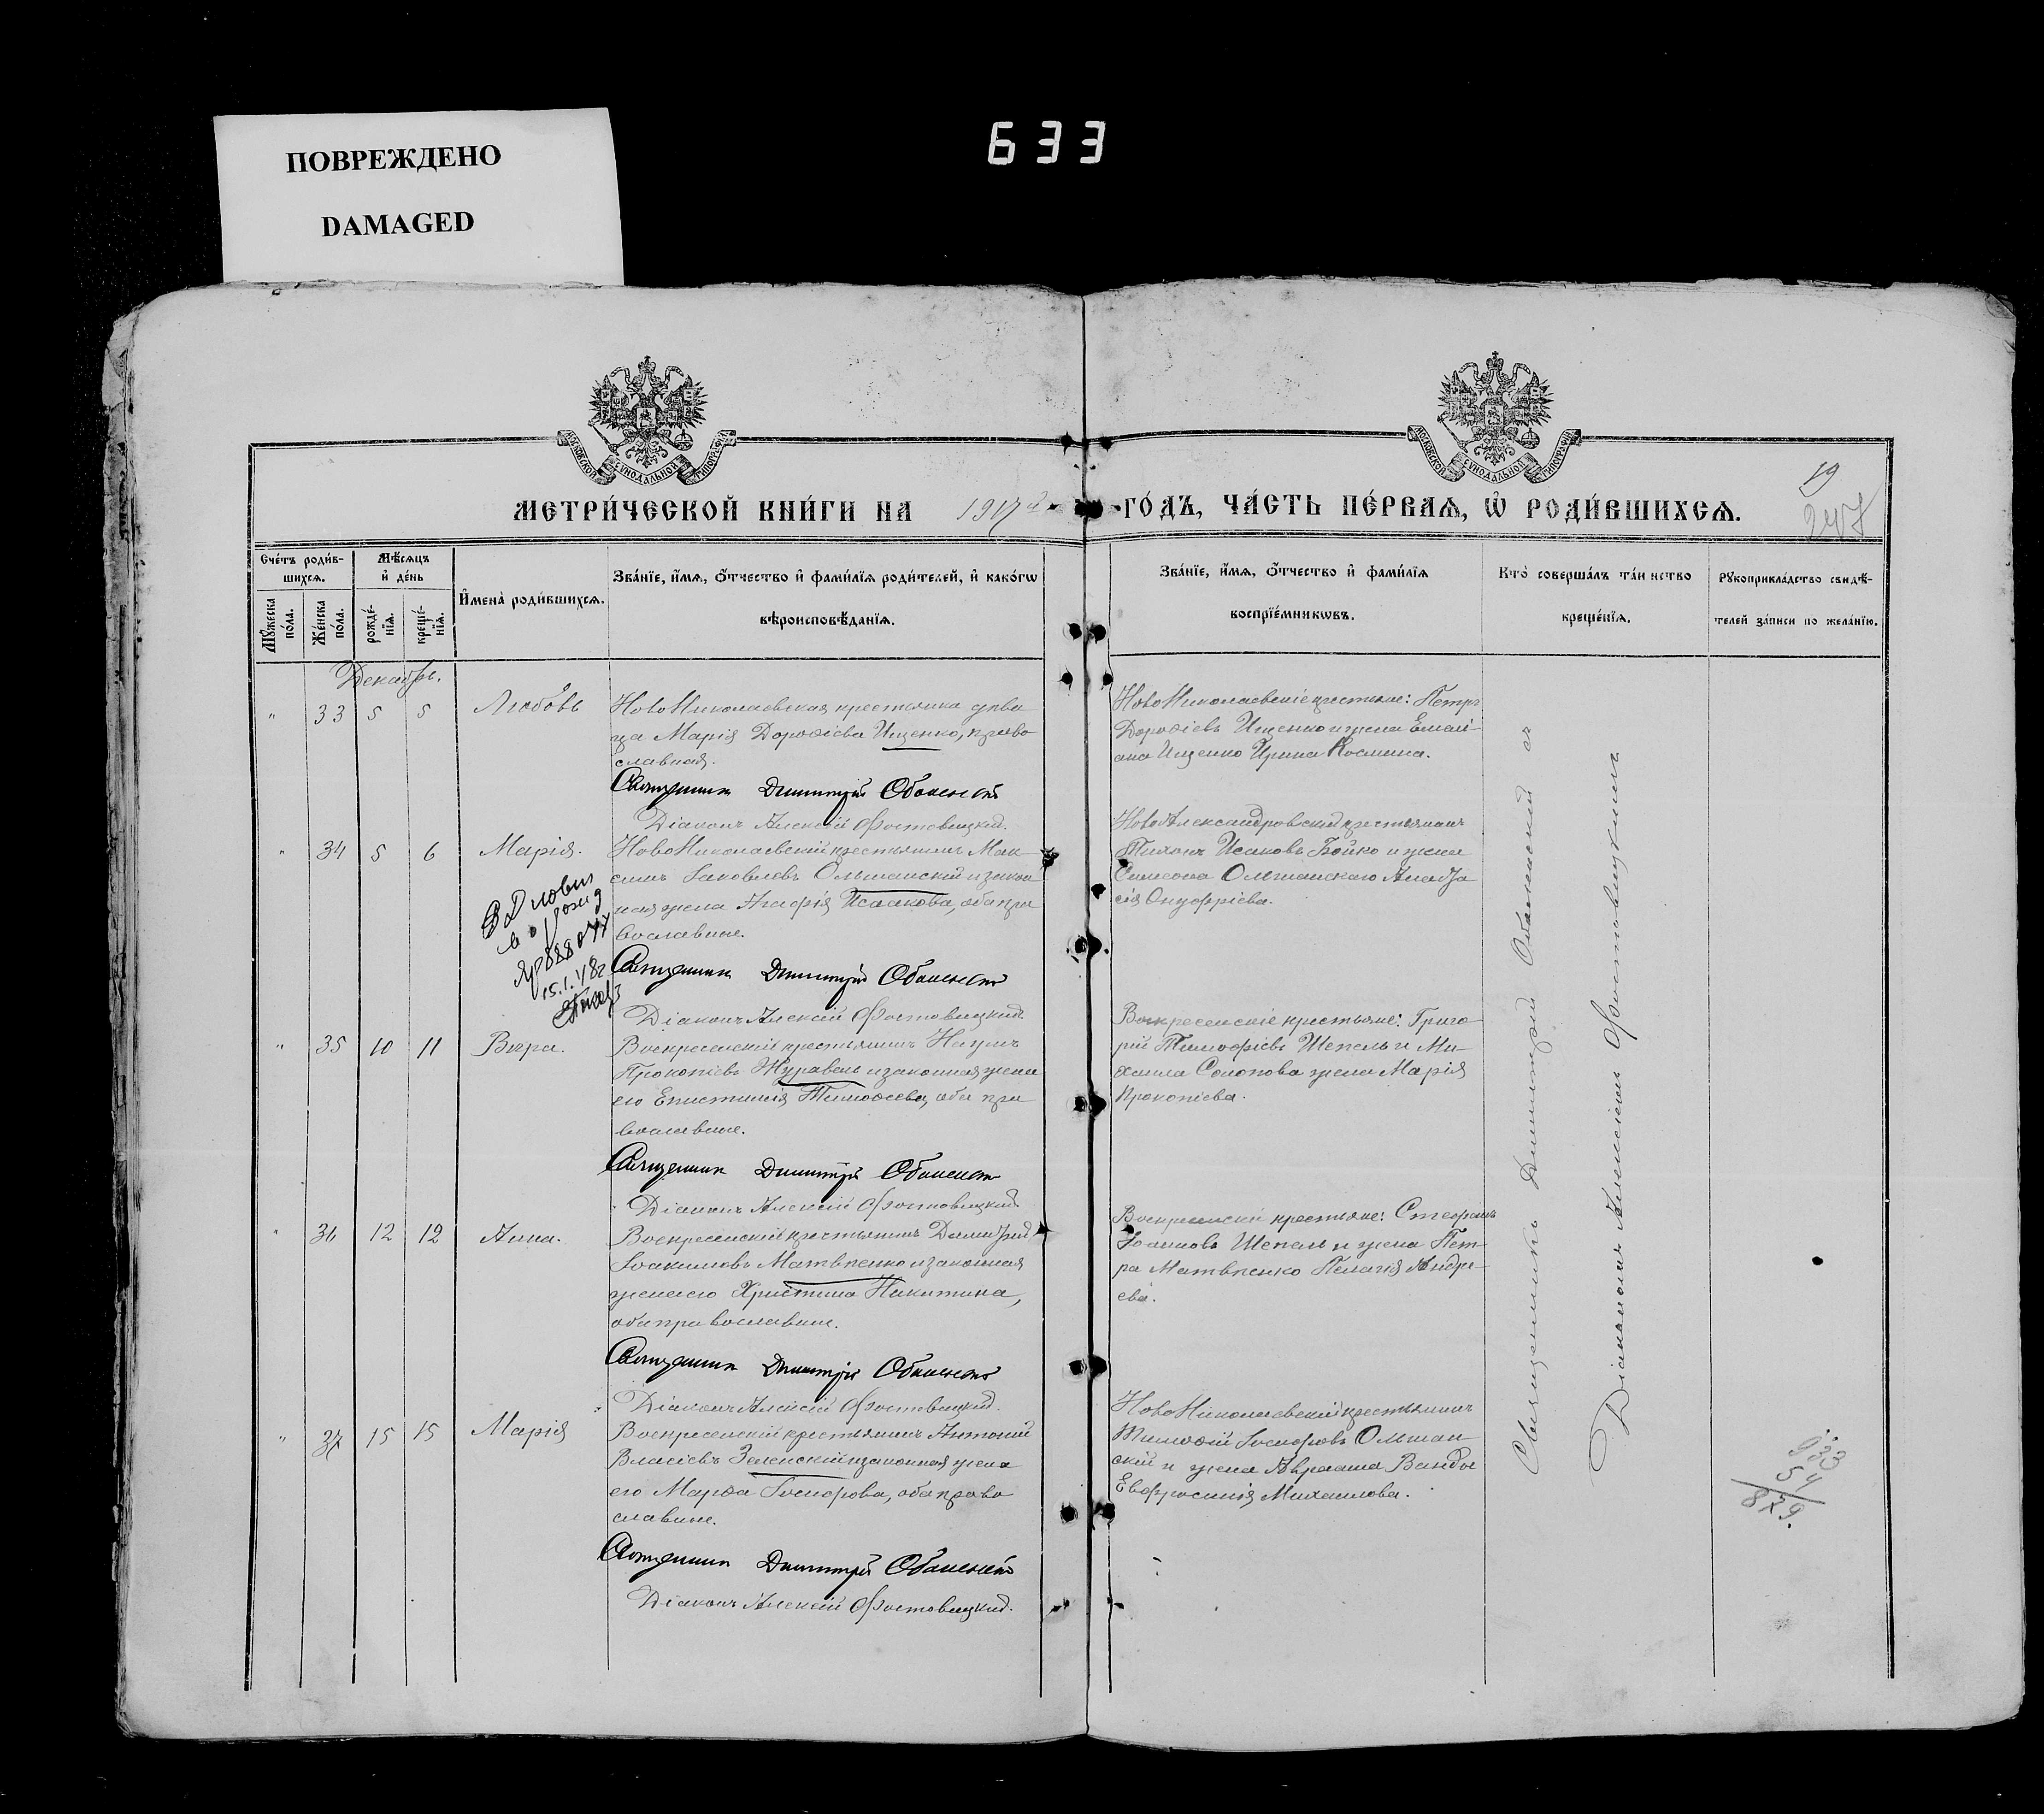 ПОВРЕЖДЕНО
DAMAGED
633
МЕТРИ́ЧЕСКОЙ КНИ́ГИ НА 1917 ГО́ДЪ, ЧА́СТЬ ПЕ́РВАѦ, Ѽ РОДИ́ВШИХСѦ.
19
247
Сче́тъ роди́в-
шихсѧ.
Мꙋ́жеска
по́ла.
Же́нска
по́ла.
Мѣ́сѧцъ
и҆ де́нь
рожде́-
нїѧ.
креще́-
нїѧ.
И҆мена̀ роди́вшихсѧ.
Зва́нїе, и҆́мѧ, ѻ҆́тчество и҆ фами́лїѧ роди́телей, и҆ како́гѡ
вѣроисповѣ́данїѧ.
Зва́нїе, и҆́мѧ, ѻ҆́тчество и҆ фами́лїѧ
воспрїе́мникѡвъ.
Кто̀ соверша́лъ та́инство
креще́нїѧ.
Рꙋкоприкла́дство свидѣ́-
телей за́писи по жела́нїю.
Декабрь.
" 33 5 5 Любовь
НовоНиколаевская крестьянка дѣви
ца Марія Дороѳіева Ищенко, право
славная.
Священник Димитрій Обаленскій
Діаконъ Алексій Фостовицкий.
НовоНиколаевскіе крестьяне: Петръ
Дороѳіевъ Ищенко и жена Емели-
ана Ищенко Ирина Космина.
" 34 5 6 Марія.
НовоНиколаевскій крестьянинъ Мак-
симъ Іаковлевъ Ольшанскій и закон
ная жена Агафія Исаакова, оба пра
вославные.
Священник Димитрій Обаленскій
Діаконъ Алексій Фостовицкий.
НовоАлександровский крестьянинъ
Тихонъ Исаковъ Бойко и жена
Симеона Ольшанскаго Анаста
сія Онуфріева.
15.1.48г
" 35 10 11 Вѣра.
Воскресенскій крестьянинъ Наумъ
Прокопіевъ Журавель и законная жена
его Епистимія Тимоѳеева, оба пра
вославные.
Священник Димитрій Обаленскій
Діаконъ Алексій Фостовицкий
Воскресенскіе крестьяне: Григо-
рій Тимоѳіевъ Шепель и Ми-
хаила Солопова жена Марія
Прокопіева.
" 36 12 12 Анна.
Воскресенскій крестьянинъ Димитрий
Іоакимовъ Матвѣенко и законная
жена его Христина Никитина,
оба православные.
Священник Димитрій Обаленскій
Діаконъ Алексій Фостовицкий.
Воскресенскіе крестьяне: Стефанъ
Іоанновъ Шепель и жена Пет-
ра Матвѣенко Пелагія Андре-
ева.
" 37 15 15 Марія
Воскресенскій крестьянинъ Антоний
Власіевъ Зеленскій и законная жена
его Марѳа Іосифова, оба право
славные.
Священник Димитрій Обаленскій
Діаконъ Алексій Фостовицкий.
НовоНиколаевскій крестьянинъ
Тимоѳій Іосифовъ Ольшан-
ский и жена Авраама Ванды
Евфросинія Михаилова.
Священникъ Димитрий Обаленский съ
Діакономъ Алексіемъ Фостовицкимъ
933
54
879.